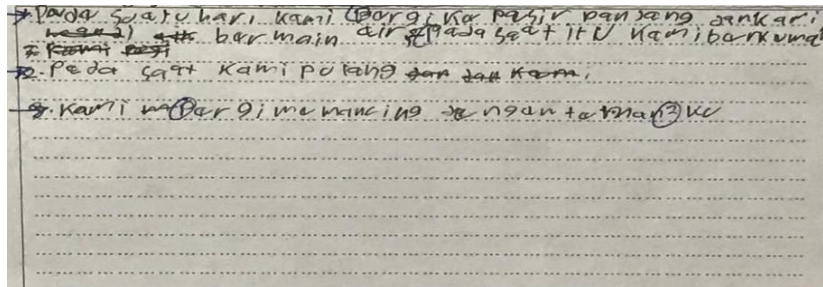 Pada suatu hari kami pargi ke pasir panjang dan kami
bar main air pada saat itu kami barkumal
2. Pada saat kami pulang
3. kami pargi memancing dengan taman 2 ku